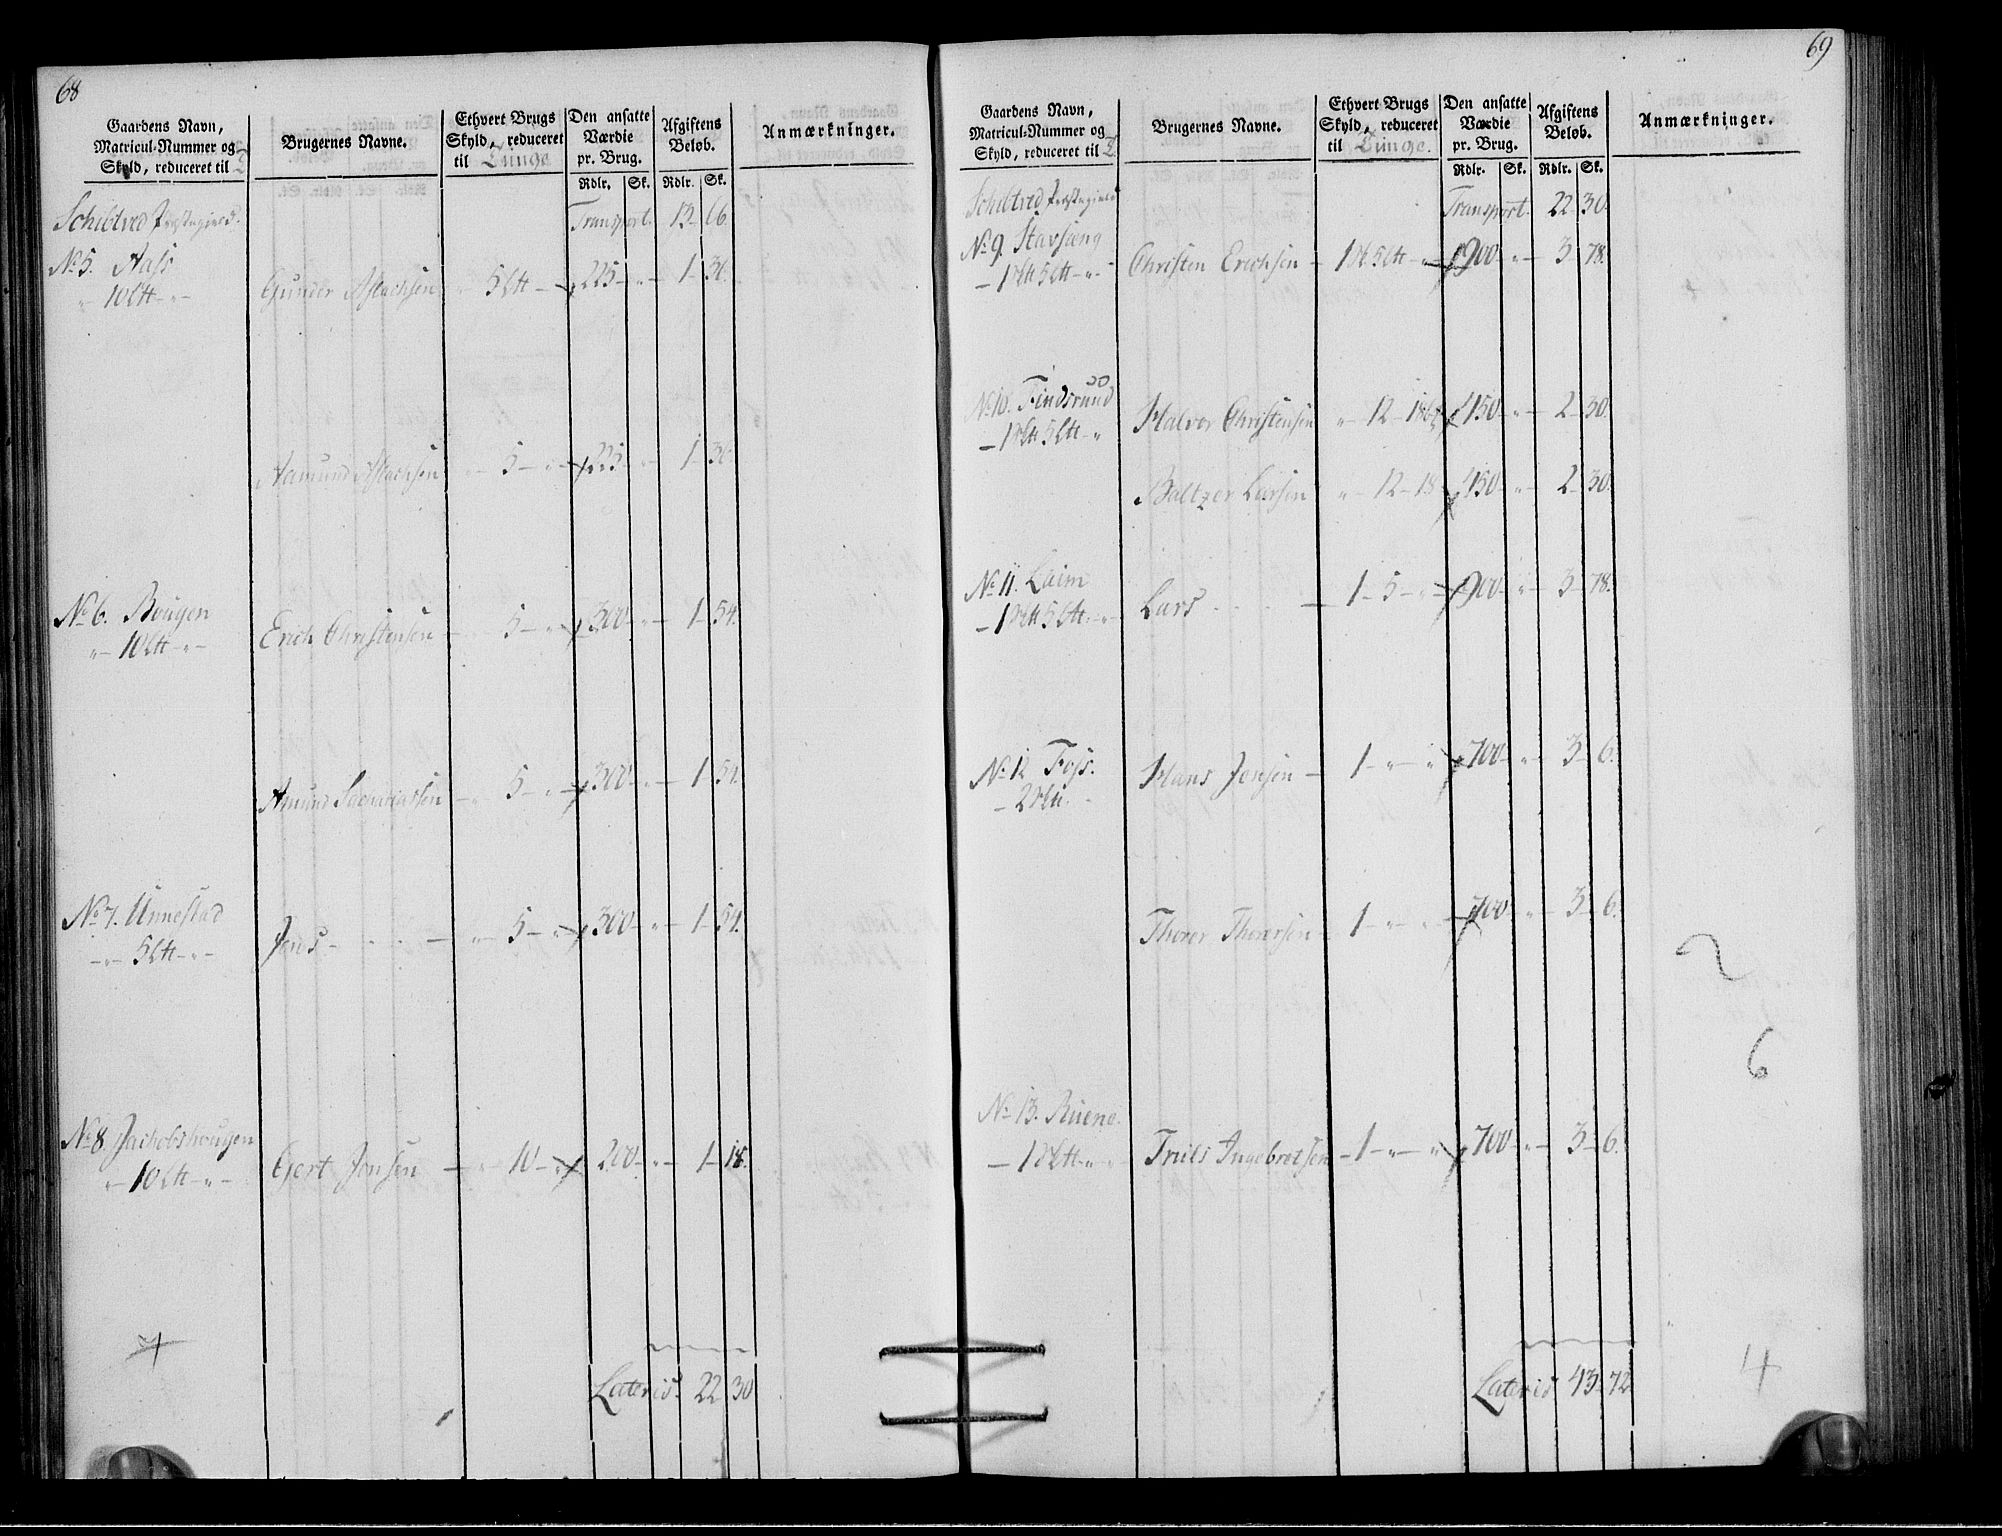 68
Gaardens Navn, Matricul-Nummer og Skyld, reduceret til
Brugernes Navne.
Ethvert Brugs Skyld, reduceret til Tunge
Den ansatte Værdie pr. Brug.
Afgiftens Beløb.
Anmærkninger.
Rdlr. Sk. Rdlr. Sk.
Transport. 13 66.
No 5. Aass
Gunder Aslachsen 5 225 " 1 36
" 10 "
Aamund Aslachsen 5 " 225 " 1 36
No 6. Bougen
Erich Christensen 5 " 300 " 1 54.
" 10 "
Amund Sachariassen 5 " 300 " 1 54.
No 7. Unnestad
Jens 5 " 300 " 1 54.
" 5 "
No 8 Jachobshougen
Gert Jensen 10 " 200 " 1 18.
" 10 "
Lateris. 22 30
69
Gaardens Navn, Matricul-Nummer og Skyld, reduceret til
Brugernes Navne.
Ethvert Brugs Skyld, reduceret til Tunge.
Den ansatte Værdie pr. Brug.
Afgiftens Beløb.
Anmærkninger.
Rdlr. Sk. Rdlr. Sk.
Transport. 22 30
No 9. Stavseng
Christen Erichsen 1 5 " 900 " 3 78.
No 10. Findsrund
Halvor Christensen " 12 18 450 " 2 30.
Baltzer Larsen " 12 18 450 " 2 30.
No 11. Laim
Lars 1 5 " 900 " 3 78.
No 12 Foss.
Hans Jensen 1 " " 700 " 3 6.
Thorer Thorersen 1 " " 700 " 3 6.
2
6
No 13. Ruene.
Truls Ingebretsen 1 " " 700 " 3 6.
4
Lateris 43 72